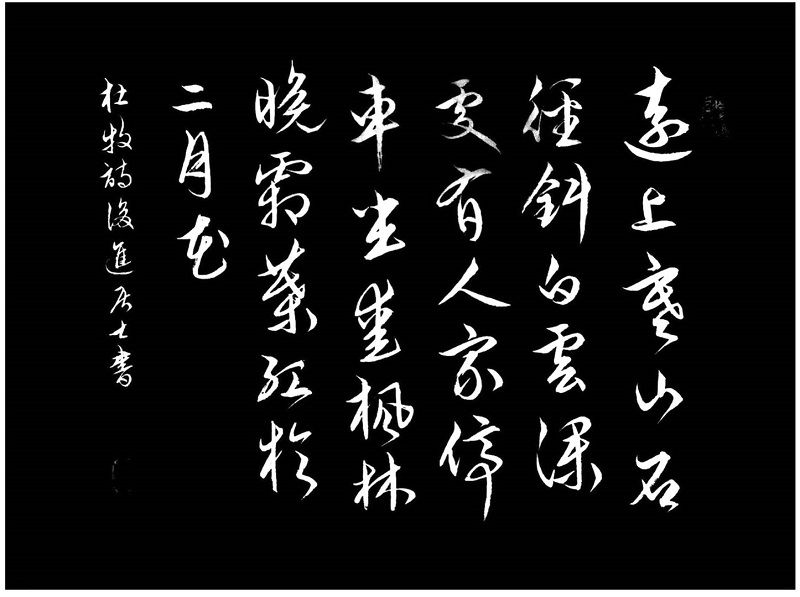 遠上寒山石
徑斜白雲深
處有人家停
車坐愛楓林
晚霜葉紅於
二月花
杜牧詩後進居士書